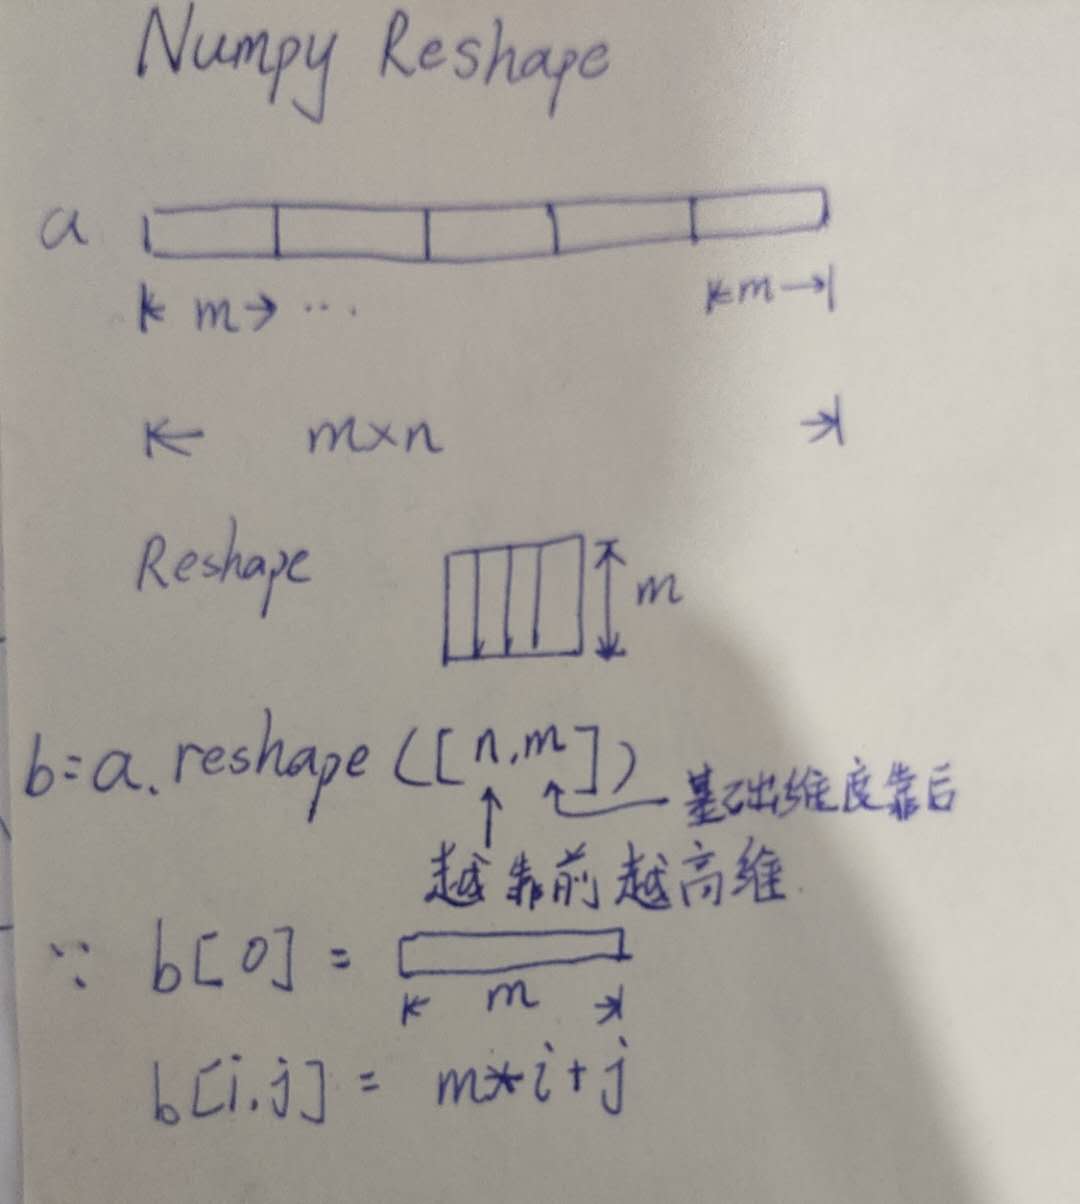 Numpy Reshape
a
m ...
m
m×n
Reshape
m
b=a.reshape([n,m])
基础维度靠后
越靠前越高维
∵ b[0] =
m
b[i,j] = m*i+j